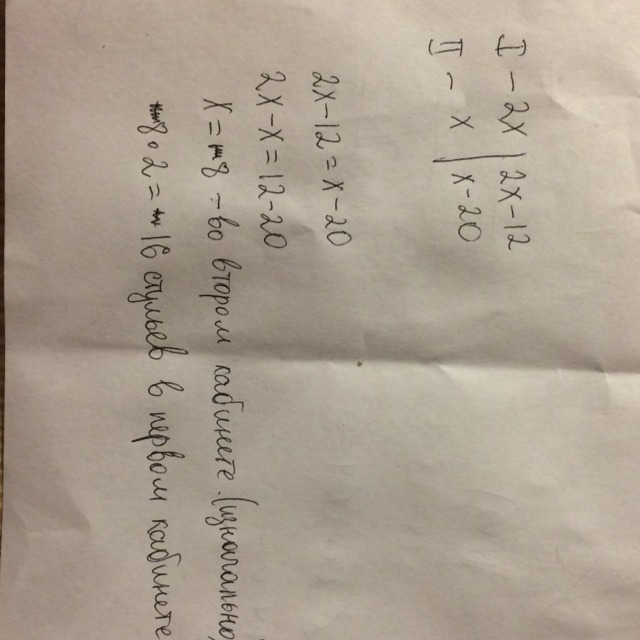 I - 2x | 2x-12
II - x | x-20
2x-12=x-20
2x-x=12-20
x=8 - во втором кабинете. (изначально)
8·2=16 стульев в первом кабинете